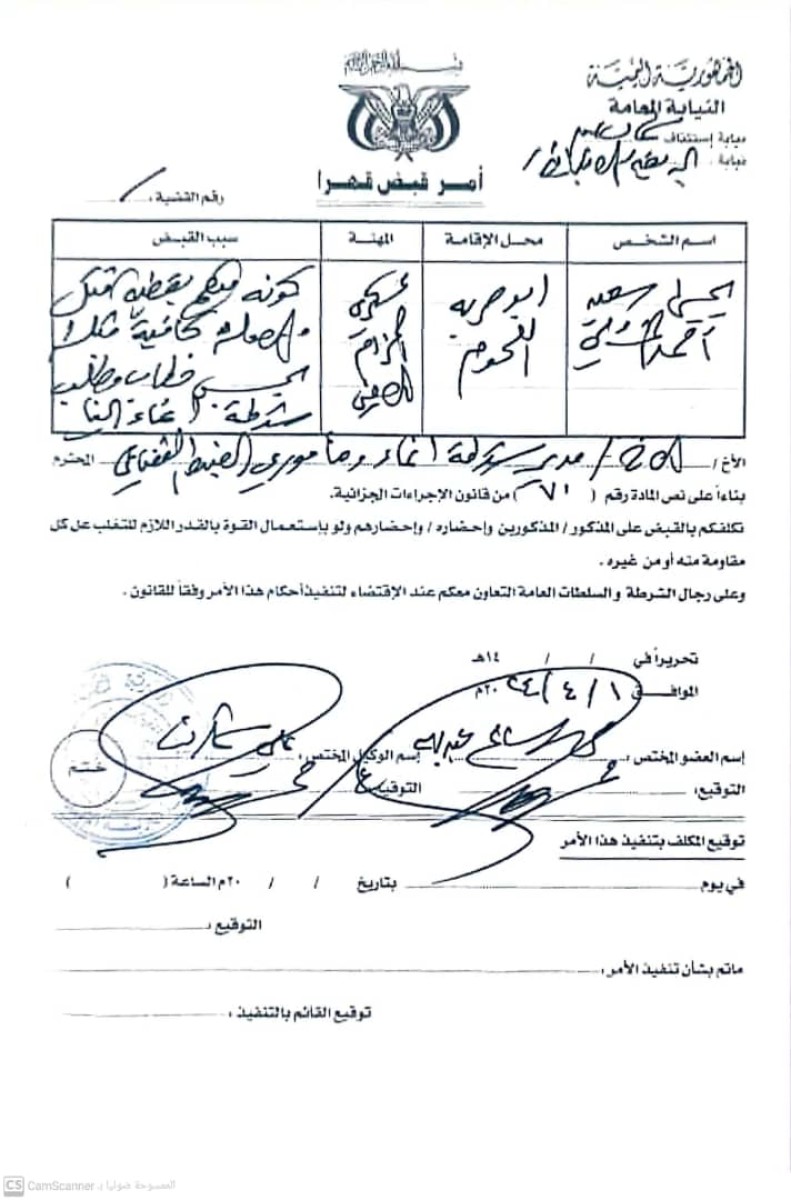 بسم الله الرحمن الرحيم
الجمهورية اليمنية
النيابة العامة
نيابة إستئناف
نيابة :
أمر قبض قهرا
رقم القضية :
اسم الشخص	محل الإقامة	المهنة	سبب القبض
سعيد	ابو حربه	عسكري	كونه متهم بقضية قتل
أحمد	الفحوم	الحزام
الأمني	خطاب وطلب
شرطة إنماء
الأخ / مدير شرطة انماء ومأموري الضبط القضائي المحترم
بناءاً على نص المادة رقم ( ٧١ ) من قانون الإجراءات الجزائية.
نكلفكم بالقبض على المذكور / المذكورين وإحضاره / وإحضارهم ولو بإستعمال القوة بالقدر اللازم للتغلب عل كل
مقاومة منه أو من غيره .
وعلى رجال الشرطة والسلطات العامة التعاون معكم عند الإقتضاء لتنفيذ أحكام هذا الأمر وفقاً للقانون .
تحريراً في / / ١٤هـ
الموافق ١ / ٤ / ٢٠٢٤م
إسم العضو المختص : إسم الوكيل المختص :
التوقيع : التوقيع :
ختم
توقيع المكلف بتنفيذ هذا الأمر
في يوم بتاريخ / / ٢٠م الساعة ( )
التوقيع :
ماتم بشأن تنفيذ الأمر :
توقيع القائم بالتنفيذ :
CS CamScanner الممسوحة ضوئيا بـ